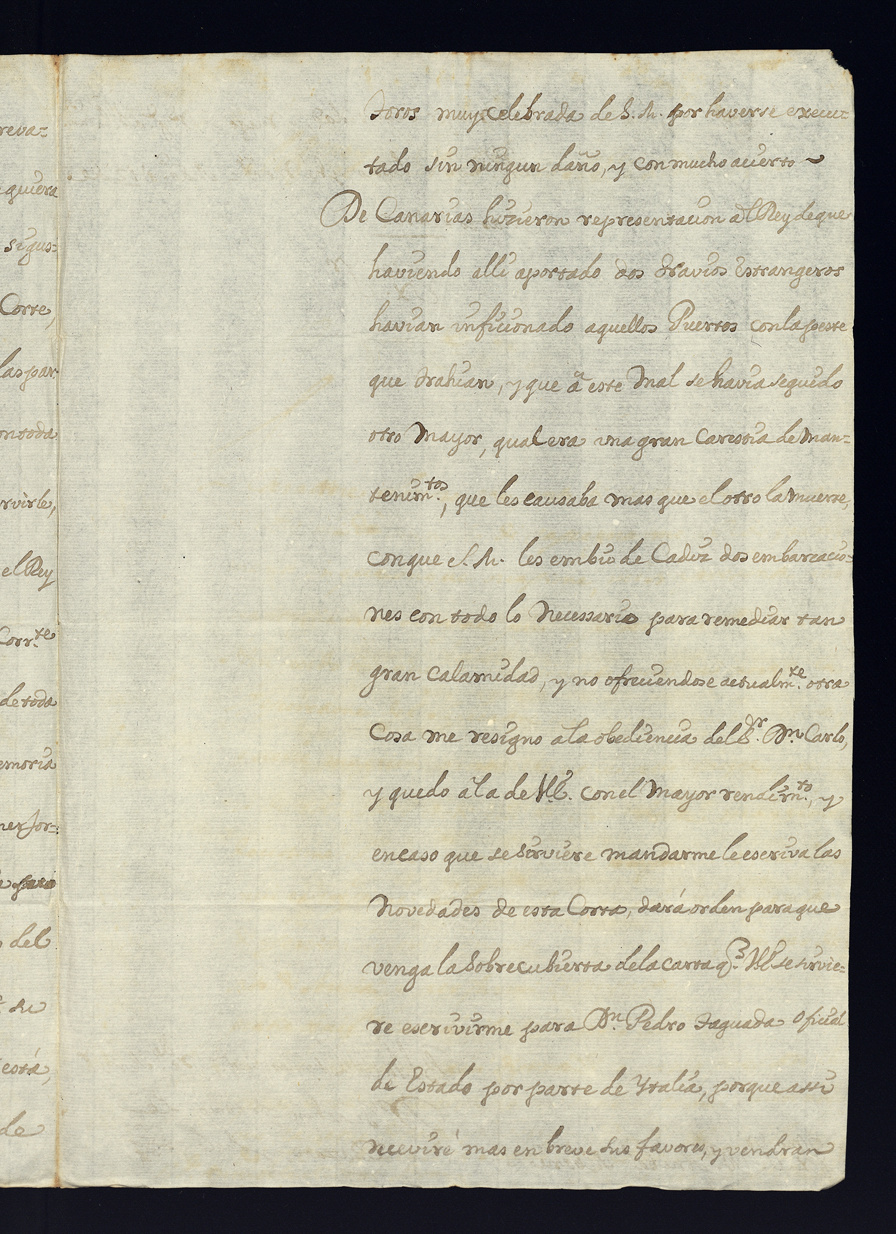 reva=
quiera
sigus=
Corte,
las par
on toda
rvirle,
el Rey
Corr.te
de toda
emoria
ner Jor=
del
su
está,
de
toros muy celebrada de S. M. por haverse execu=
tado sin ningun daño, y con mucho acierto ~
De Canarias hizieron representacion al Rey de que
haviendo alli aportado dos Navios Estrangeros
havian inficionado aquellos Puertos con la peste
que trahian, y que à este mal se havia seguido
otro Mayor, qual era una gran Carestia de Man=
tenim.tos, que les causaba mas que el otro la Muerte,
con que S. M. les embio de Cadiz dos embarcacio=
nes con todo lo Necessario para remediar tan
gran calamidad, y no ofreciendose actualm.te otra
Cosa me resigno a la obediencia del S.r D.n Carlo,
y quedo à la de VE. con el Mayor rendim.to, y
en caso que se sirviere mandarme le escriva las
Novedades de esta Corte, dará orden para que
venga la Sobrecubierta de la carta q.e VE. se sirvie=
re escrivirme para D.n Pedro Taguada Oficial
de Estado por parte de Ytalia, porque assi
reciviré mas en breve sus favores, y vendran